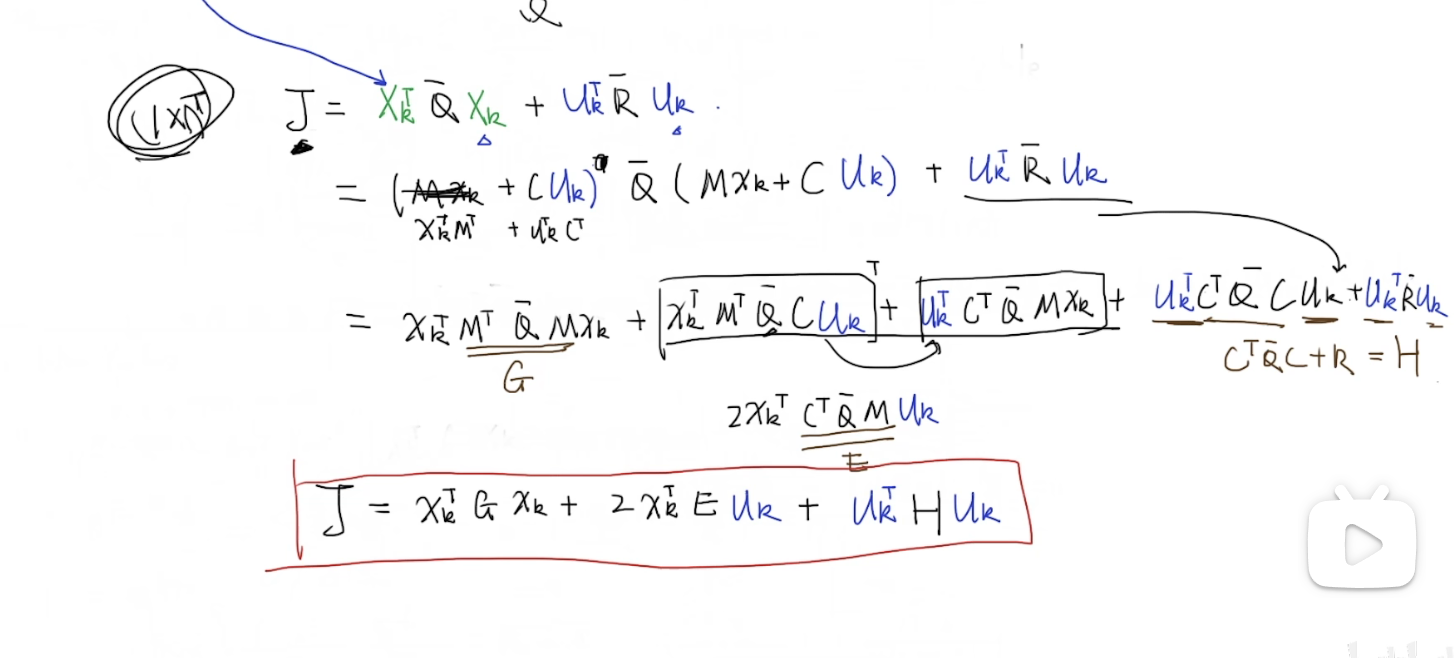 Q
(1×1)ᵀ
J = X_kᵀ Q̄ X_k + U_kᵀ R̄ U_k .
= ( + C U_k)ᵀ Q̄ (M x_k + C U_k) + U_kᵀ R̄ U_k
x_kᵀ Mᵀ + U_kᵀ Cᵀ
= x_kᵀ Mᵀ Q̄ M x_k + x_kᵀ Mᵀ Q̄ C U_k ᵀ + U_kᵀ Cᵀ Q̄ M x_k + U_kᵀ Cᵀ Q̄ C U_k + U_kᵀ R̄ U_k
G
Cᵀ Q̄ C + R = H
2 x_kᵀ Cᵀ Q̄ M U_k
E
J = x_kᵀ G x_k + 2 x_kᵀ E U_k + U_kᵀ H U_k